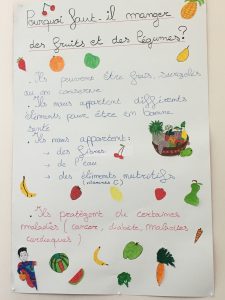 Pourquoi faut-il manger
des fruits et des légumes?
. Ils peuvent être frais, surgelés
ou en conserve
. Ils nous apportent différents
éléments pour être en bonne
santé
. Ils nous apportent:
→ des fibres
→ de l'eau
→ des éléments nutritifs
(vitamines C)
. Ils protègent de certaines
maladies (cancer, diabète, maladies
cardiaques)